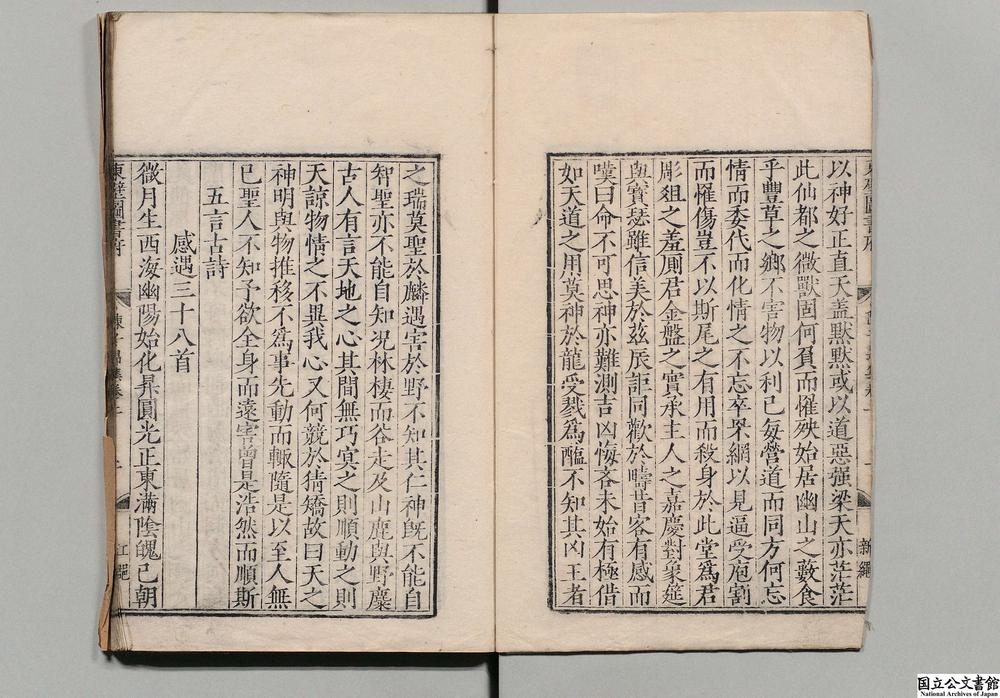 以神好正直天盖默默或以道惡强梁天亦茫茫
此仙都之微獸固何負而罹殃始居幽山之藪食
乎豐草之鄉不害物以利己每營道而同方何忘
情而委代而化情之不忘卒罘網以見逼受庖割
而罹傷豈不以斯尾之有用而殺身於此堂爲君
雕俎之羞厠君金盤之實承主人之嘉慶對衆筵
與寳瑟雖信美於兹辰詎同歡於疇昔客有感而
嘆曰命不可思神亦難測吉凶悔吝未始有極借
如天道之用莫神於龍受戮爲醢不知其凶王者
之瑞莫聖於麟遇害於野不知其仁神旣不能自
智聖亦不能自知况林棲而谷走及山鹿與野麋
古人有言天地之心其間無巧㝠之則順動之則
天諒物情之不異我心又何競於猜矯故曰天之
神明與物推移不爲事先動而輙隨是以至人無
已聖人不知予欲全身而遠害曾是浩然而順斯
五言古詩
感遇三十八首
微月生西海幽陽始化昇圓光正東滿陰魄已朝
東壁圖書府
新繩
江繩
国立公文書館
National Archives of Japan